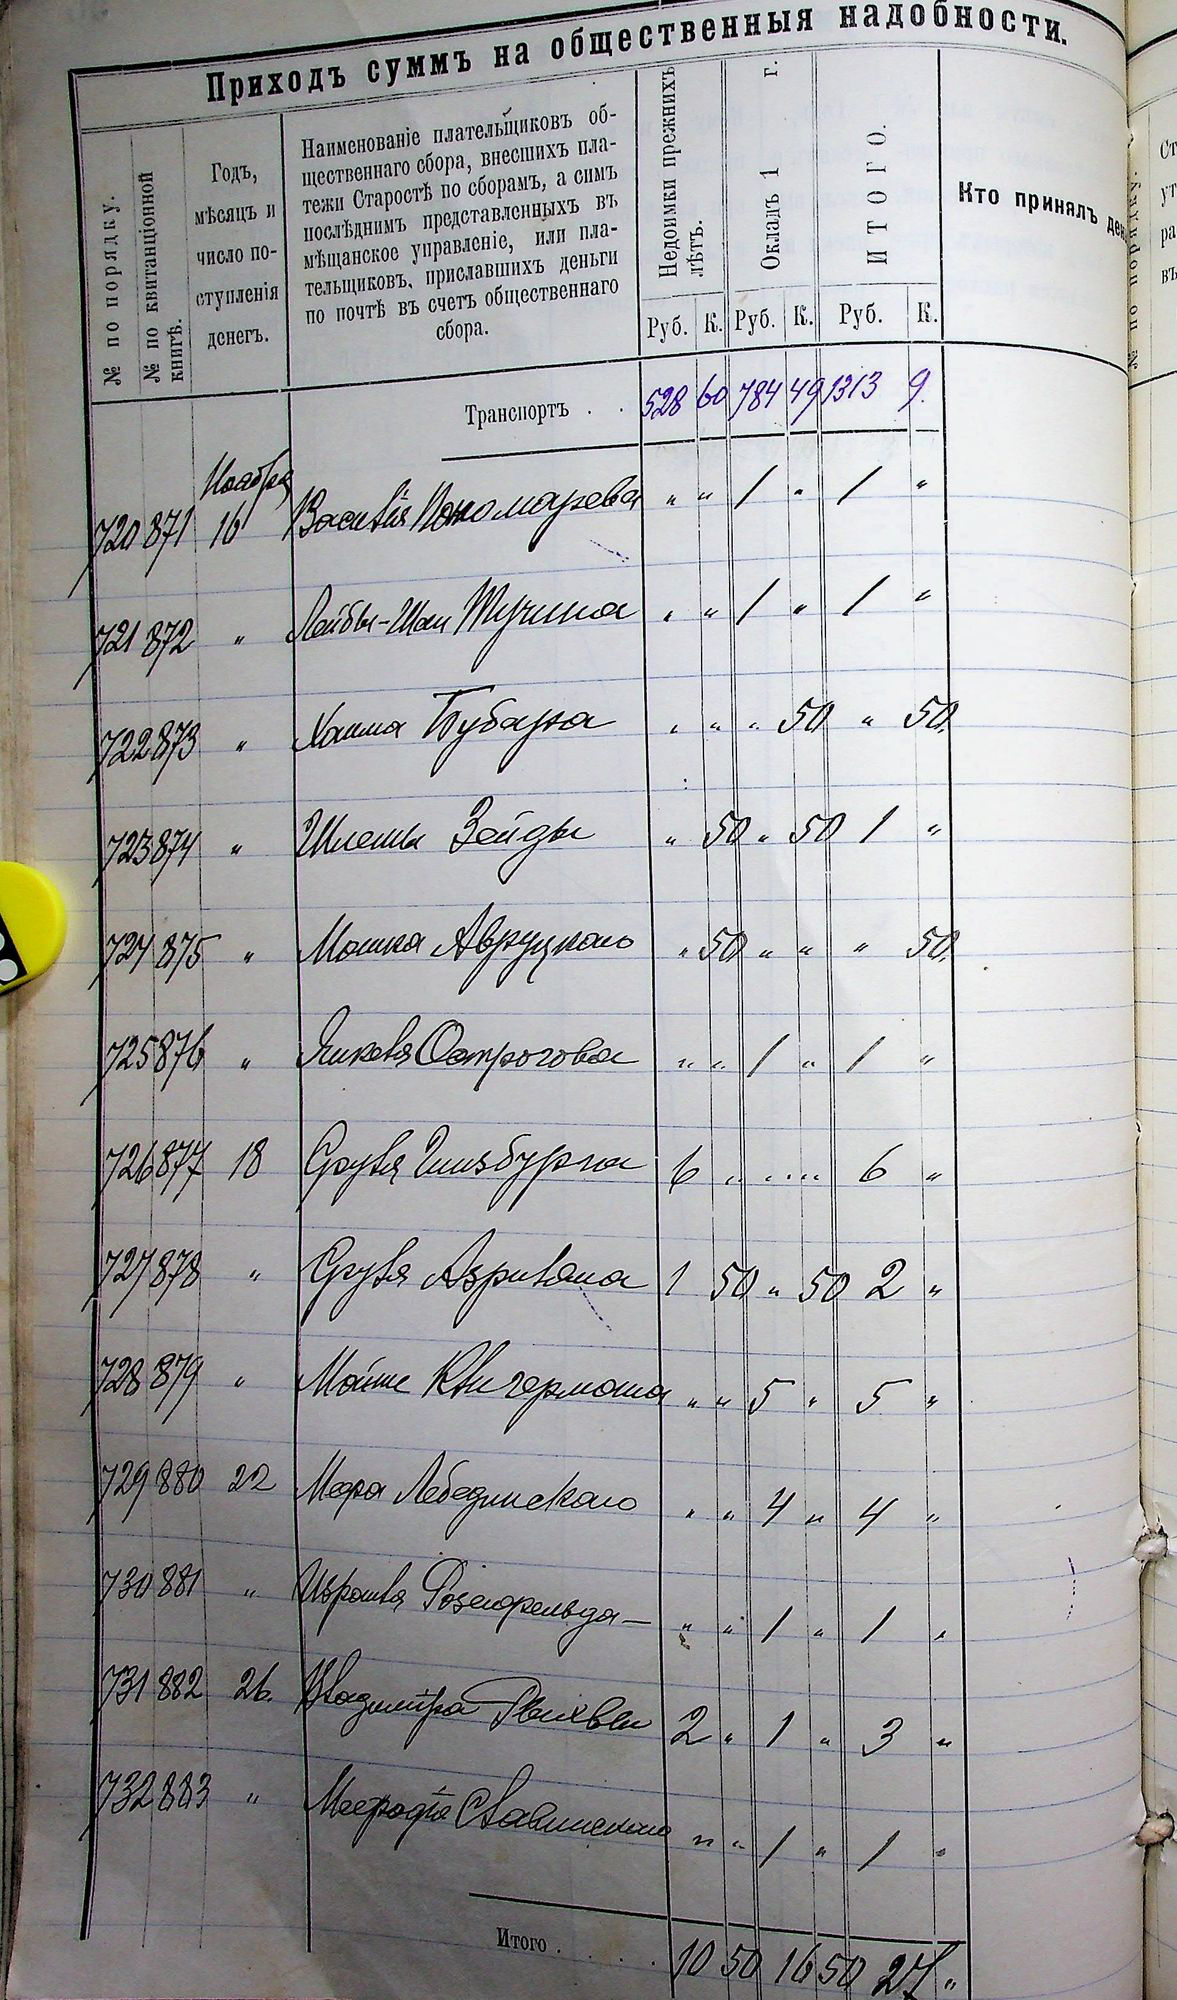 Приходъ суммъ на общественныя надобности.
№ по порядку.
№ по квитанціонной книгѣ.
Годъ,
мѣсяцъ и
число по-
ступленія
денегъ.
Наименованіе плательщиковъ об-
щественнаго сбора, внесшихъ пла-
тежи Старостѣ по сборамъ, а симъ
послѣднимъ представленныхъ въ
мѣщанское управленіе, или пла-
тельщиковъ, приславшихъ деньги
по почтѣ въ счетъ общественнаго
сбора.
Недоимки прежнихъ лѣтъ.
Окладъ 1 г.
ИТОГО.
Кто принялъ ден
Руб. К. Руб. К. Руб. К.
Транспортъ . . 528 60 784 49 1313 9.
Ноября
720 871 16 Василія Пономарева " " 1 " 1 "
721 872 " Лейбы-Шаи Тучина " " 1 " 1 "
722 873 " Хаима " " " 50 " 50.
723 874 " Шлемы Зейды " 50 " 50 1 "
724 875 " Мошка Авруцкаго " 50 " " " 50.
725 876 " Якова Острогова " " 1 " 1 "
726 877 18 Сруля Гинзбурга 6 " " " 6 "
727 878 " Сруля 1 50 " 50 2 "
728 879 " " " 5 " 5 "
729 880 22 Меера Лебединскаго " " 4 " 4 "
730 881 " Израиля Розенфельда — " " 1 " 1 "
731 882 26. Владиміра 2 " 1 " 3 "
732 883 " Мефодія Славинскаго " " 1 " 1 "
Итого . . . . 10 50 16 50 27 "